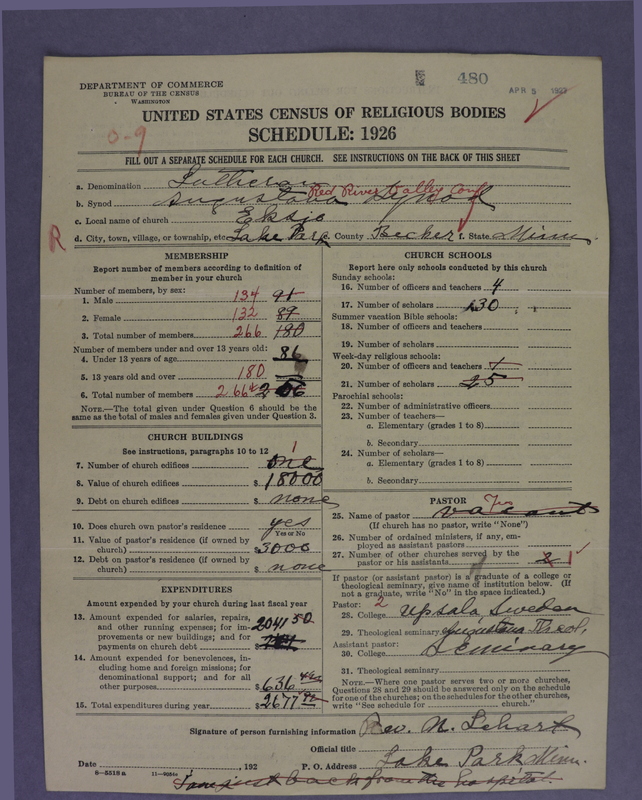 DEPARTMENT OF COMMERCE
BUREAU OF THE CENSUS
WASHINGTON
480
APR 5 1927
UNITED STATES CENSUS OF RELIGIOUS BODIES
SCHEDULE: 1926
0-9
FILL OUT A SEPARATE SCHEDULE FOR EACH CHURCH. SEE INSTRUCTIONS ON THE BACK OF THIS SHEET
a. Denomination Lutheran
Red River Valley Conf
b. Synod Augustana Synod
c. Local name of church Eksjo
R
d. City, town, village, or township, etc. Lake Park e. County Becker f. State Minn.
MEMBERSHIP
Report number of members according to definition of
member in your church
Number of members, by sex:
1. Male 134 91
2. Female 132 89
3. Total number of members 266 180
Number of members under and over 13 years old:
4. Under 13 years of age 86
5. 13 years old and over 180
6. Total number of members 266
NOTE.—The total given under Question 6 should be the
same as the total of males and females given under Question 3.
CHURCH BUILDINGS
See instructions, paragraphs 10 to 12
7. Number of church edifices one 1
8. Value of church edifices $ 18000
9. Debt on church edifices $ none
10. Does church own pastor's residence yes
Yes or No
11. Value of pastor's residence (if owned by
church) $ 3000
12. Debt on pastor's residence (if owned by
church) $ none
EXPENDITURES
Amount expended by your church during last fiscal year
13. Amount expended for salaries, repairs,
and other running expenses; for im-
provements or new buildings; and for
payments on church debt $ 2041 50
14. Amount expended for benevolences, in-
cluding home and foreign missions; for
denominational support; and for all
other purposes $ 636
15. Total expenditures during year $ 2677
CHURCH SCHOOLS
Report here only schools conducted by this church
Sunday schools:
16. Number of officers and teachers 4
17. Number of scholars 30
Summer vacation Bible schools:
18. Number of officers and teachers
19. Number of scholars
Week-day religious schools:
20. Number of officers and teachers 1
21. Number of scholars 25
Parochial schools:
22. Number of administrative officers
23. Number of teachers—
a. Elementary (grades 1 to 8)
b. Secondary
24. Number of scholars—
a. Elementary (grades 1 to 8)
b. Secondary
PASTOR
25. Name of pastor vacant
(If church has no pastor, write "None")
26. Number of ordained ministers, if any, em-
ployed as assistant pastors
27. Number of other churches served by the
pastor or his assistants 2 1
If pastor (or assistant pastor) is a graduate of a college or
theological seminary, give name of institution below. (If
not a graduate, write "No" in the space indicated.)
Pastor: 2
28. College Upsala, Sweden
29. Theological seminary Augustana Theol.
Assistant pastor: Seminary
30. College
31. Theological seminary
NOTE.—Where one pastor serves two or more churches,
Questions 28 and 29 should be answered only on the schedule
for one of the churches; on the schedules for the other churches,
write "See schedule for church."
Signature of person furnishing information Rev. N.
Official title
Date , 192 P. O. Address Lake Park Minn.
8—5518 a 11—9054
I am just back from the hospital.